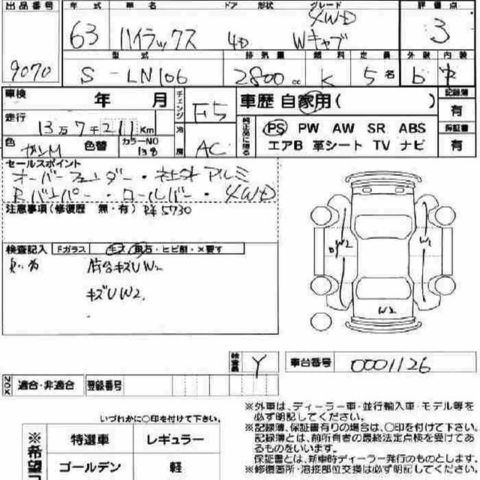 出品番号 年式 車名 ドア 形状 グレード 評価点
9070 63 ハイラックス 4D Wキャブ 4WD 3
型式 排気量 燃料 定員 外装 内装
S-LN106 2800cc K 5名 b
車検 年 月 チェンジ F5 車歴 自家用( ) 記録簿 有
走行 13万7千211Km 冷房 AC 純正に○印を付けて下さい PS PW AW SR ABS 保証書 有
色 色替 カラーNO エアB 革シート TV ナビ
セールスポイント
オーバーフェンダー・社外アルミ
Rバンパー・ロールバー・4WD
注意事項(修復歴 無・有) 5730
検査記入 Fガラス キズ 飛石・ヒビ割・×要す
キズU W2
キズU W2
U W2
W2
W2
検査員 Y 車台番号 0001126
NOX 適合・非適合 登録番号
いづれかに○印を付けて下さい。
※希望コ 特選車 レギュラー
ゴールデン 軽
※外車は、ディーラー車・並行輸入車・モデル等を
必ず明記してください。
※記録簿、保証書有りの場合は、○印を付けて下さい。
記録簿とは、前所有者の最終法定点検を受けてあ
るものをいいます。
保証書とは、新車時ディーラー発行のものとします。
※修復箇所・溶接部位交換は必ず明記してください。